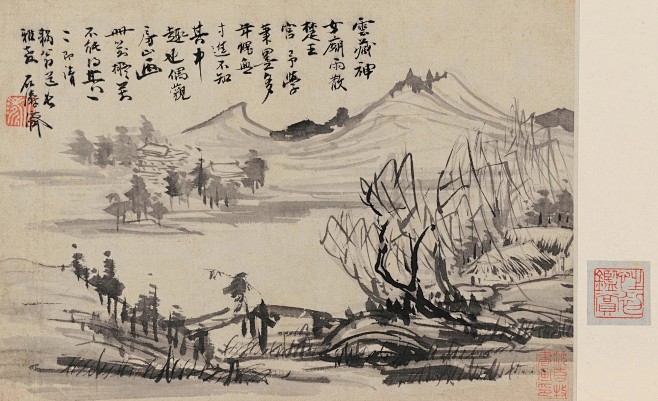 雲藏神
女廟雨散
楚王
宮 予學
筆墨多
年愧無
寸進不知
其中
趣也偶觀
房山
冊
不能得其一
二即請
翁道
雅教 石濤濟